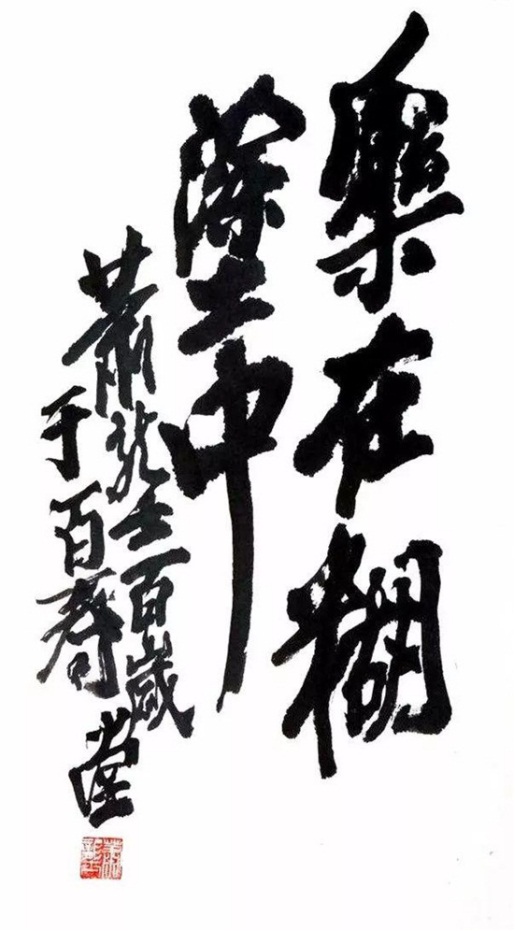 樂在糊
塗中
蕭龍士百歲
于百壽堂